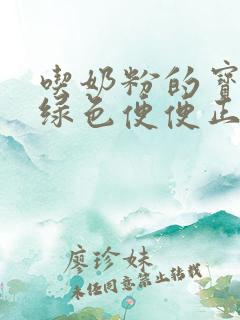 喫奶粉的寶
綠色便便正
廖珍妹
未经同意禁止转载